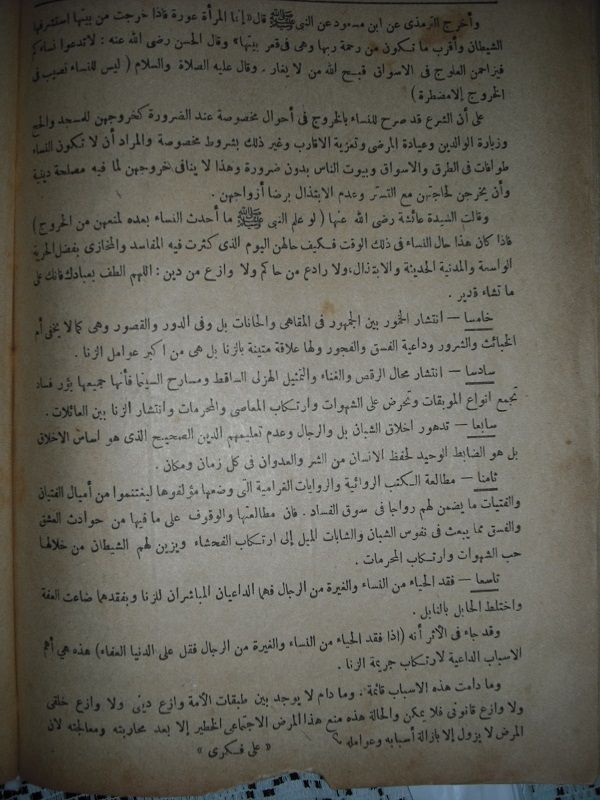 وأخرج الترمذى عن ابن مسعود عن النبى ﷺ قال «إنما المرأة عورة فاذا خرجت من بيتها استشرفها
الشيطان وأقرب ما تكون من رحمة ربها وهى فى قعر بيتها» وقال الحسن رضى الله عنه : لا تدعوا نساءكم
فيزاحمن العلوج فى الاسواق قبح الله من لا يغار . وقال عليه الصلاة والسلام ( ليس للنساء نصيب فى
الخروج إلا مضطرة )
على أن الشرع قد صرح للنساء بالخروج فى أحوال مخصوصة عند الضرورة كخروجهن للمسجد والحج
وزيارة الوالدين وعيادة المرضى وتعزية الاقارب وغير ذلك بشروط مخصوصة والمراد أن لا تكون النساء
طوافات فى الطرق والاسواق وبيوت الناس بدون ضرورة وهذا لا ينافى خروجهن لما فيه مصلحة دينية
وأن يخرجن لحاجتهن مع التستر وعدم الابتذال برضا أزواجهن .
وقالت السيدة عائشة رضى الله عنها ( لو علم النبى ﷺ ما أحدث النساء بعده لمنعهن من الخروج )
فاذا كان هذا حال النساء فى ذلك الوقت فكيف حالهن اليوم الذى كثرت فيه المفاسد والمخازى بفضل الحرية
الواسعة والمدنية الحديثة والابتذال، ولا رادع من حاكم ولا وازع من دين : اللهم الطف بعبادك فانك على
ما تشاء قدير .
خامسا — انتشار الخمور بين الجمهور فى المقاهى والحانات بل وفى الدور والقصور وهى كما لا يخفى أم
الخبائث والشرور وداعية الفسق والفجور ولها علاقة متينة بالزنا بل هى من اكبر عوامل الزنا .
سادسا — انتشار محال الرقص والغناء والتمثيل الهزلى الساقط ومسارح السينما فأنها جميعها بؤر فساد
تجمع انواع الموبقات وتحرض على الشهوات وارتكاب المعاصى والمحرمات وانتشار الزنا بين العائلات .
سابعا — تدهور اخلاق الشبان بل والرجال وعدم تعليمهم الدين الصحيح الذى هو اساس الاخلاق
بل هو الضابط الوحيد لحفظ الانسان من الشر والعدوان فى كل زمان ومكان .
ثامنا — مطالعة الكتب الروائية والروايات الغرامية التى وضعها مؤلفوها ليغتنموا من أميال الفتيان
والفتيات ما يضمن لهم رواجا فى سوق الفساد . فان مطالعتها والوقوف على ما فيها من حوادث العشق
والفسق مما يبعث فى نفوس الشبان والشابات الميل إلى ارتكاب الفحشاء ويزين لهم الشيطان من خلالها
حب الشهوات وارتكاب المحرمات .
تاسعا — فقد الحياء من النساء والغيرة من الرجال فهما الداعيان المباشران للزنا وبفقدهما ضاعت العفة
واختلط الحابل بالنابل .
وقد جاء فى الأثر أنه (اذا فقد الحياء من النساء والغيرة من الرجال فقل على الدنيا العفاء) هذه هي أهم
الاسباب الداعية لارتكاب جريمة الزنا .
وما دامت هذه الاسباب قائمة . وما دام لا يوجد بين طبقات الأمة وازع دينى ولا وازع خلقى
ولا وازع قانونى فلا يمكن والحالة هذه منع هذا المرض الاجتماعى الخطير إلا بعد محاربته ومعالجته لان
المرض لا يزول إلا بازالة أسبابه وعوامله ؟
« على فكرى »